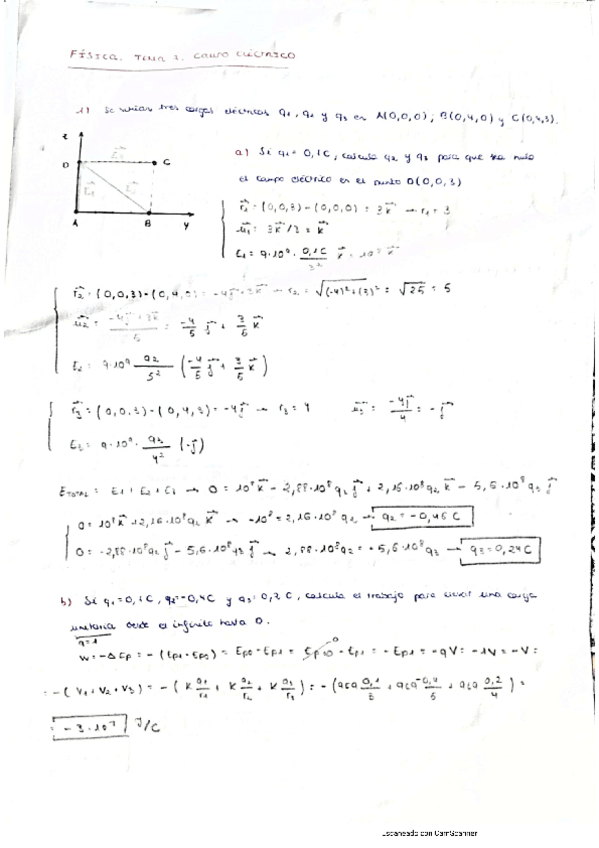 FÍSICA. TEMA 1. CAMPO ELÉCTRICO
1) Se sitúan tres cargas eléctricas q1, q2 y q3 en A(0,0,0); B(0,4,0) y C(0,4,3).
z
D
C
A
B
y
a) Si q1 = 0,1C, calcula q2 y q3 para que sea nulo
el campo eléctrico en el punto D(0,0,3)
r1 = (0,0,3)-(0,0,0) = 3k → r1 = 3
u1 = 3k/3 = k
E1 = 9·10⁹ · 0,1C/3² k = 10⁸ k
r2 = (0,0,3)-(0,4,0) = -4j+3k → r2 = √(-4)²+(3)² = √25 = 5
u2 = -4j+3k/5 = -4/5 j + 3/5 k
E2 = 9·10⁹ q2/5² (-4/5 j + 3/5 k)
r3 = (0,0,3)-(0,4,3) = -4j → r3 = 4 u3 = -4j/4 = -j
E3 = 9·10⁹ · q3/4² (-j)
ETOTAL = E1 + E2 + E3 → 0 = 10⁸ k - 2,88·10⁸ q2 j + 2,16·10⁸ q2 k - 5,6·10⁸ q3 j
0 = 10⁸ k + 2,16·10⁸ q2 k → -10⁸ = 2,16·10⁸ q2 → q2 = -0,46 C
0 = -2,88·10⁸ q2 j - 5,6·10⁸ q3 j → 2,88·10⁸ q2 = -5,6·10⁸ q3 → q3 = 0,24 C
b) Si q1 = 0,1C, q2 = -0,4C y q3 = 0,2C, calcula el trabajo para llevar una carga
unitaria desde el infinito hasta D.
q=1
W = -ΔEp = -(Ep1 - Ep0) = Ep0 - Ep1 = - Ep1 = -qV = -1V = -V =
= -(V1 + V2 + V3) = -(K q1/r1 + K q2/r2 + K q3/r3) = -(9·10⁹ 0,1/3 + 9·10⁹ -0,4/5 + 9·10⁹ 0,2/4) =
= -3·10⁷ J/C
Escaneado con CamScanner